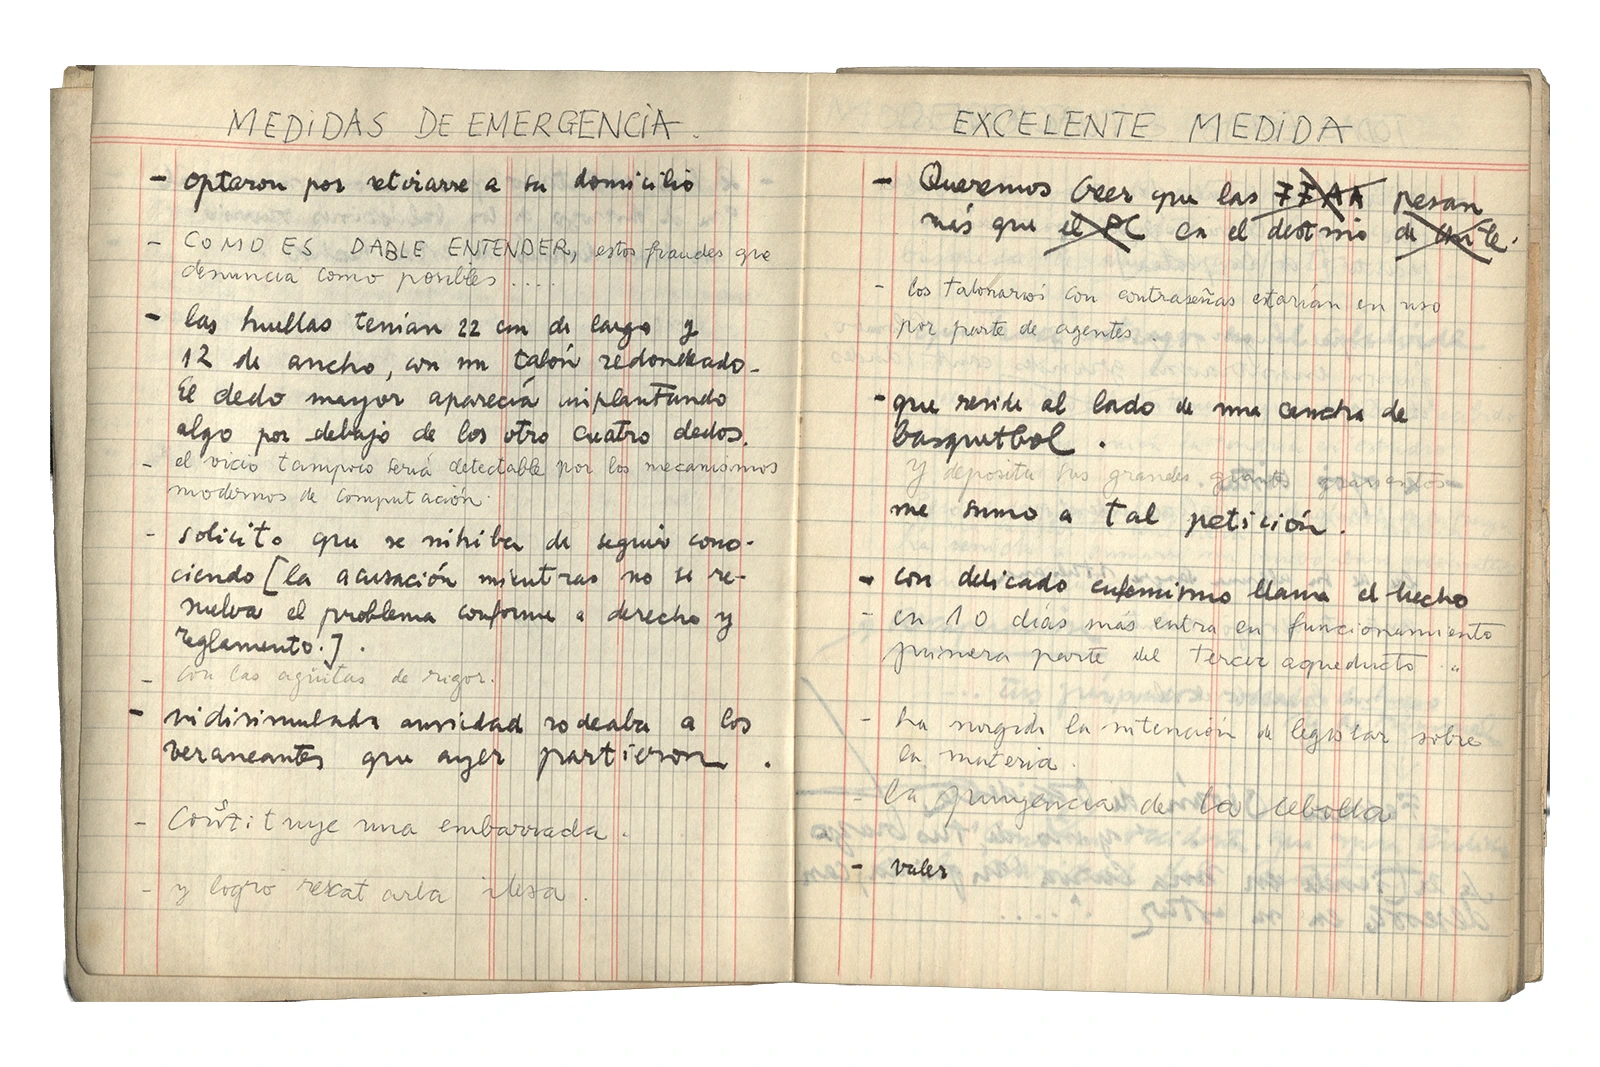 MEDIDAS DE EMERGENCIA.
- optaron por retirarse a su domicilio
- COMO ES DABLE ENTENDER, estos fraudes que
denuncia como posibles ....
- las huellas tenían 22 cm de largo y
12 de ancho, con un talón redondeado.
El dedo mayor aparecía implantando
algo por debajo de los otro cuatro dedos.
- el vicio tampoco será detectable por los mecanismos
modernos de computación.
- solicito que se inhiba de seguir cono-
ciendo [la acusación mientras no se re-
suelva el problema conforme a derecho y
reglamento.] .
- con las agüitas de rigor.
- indisimulada ansiedad rodeaba a los
veraneantes que ayer partieron .
- Constituye una embarrada .
- y logró rescatarla ilesa .
EXCELENTE MEDIDA
- Queremos creer que las FFAA pesan
más que el PC en el destino de Chile.
- los talonarios con contraseñas estarían en uso
por parte de agentes .
- que reside al lado de una cancha de
basquetbol .
y deposita sus grandes
me sumo a tal petición .
- con delicado eufemismo llama el hecho
- en 10 días más entra en funcionamiento
primera parte del tercer aqueducto . "
- ha surgido la intención de legislar sobre
la materia .
- la pungencia de la cebolla
- valer